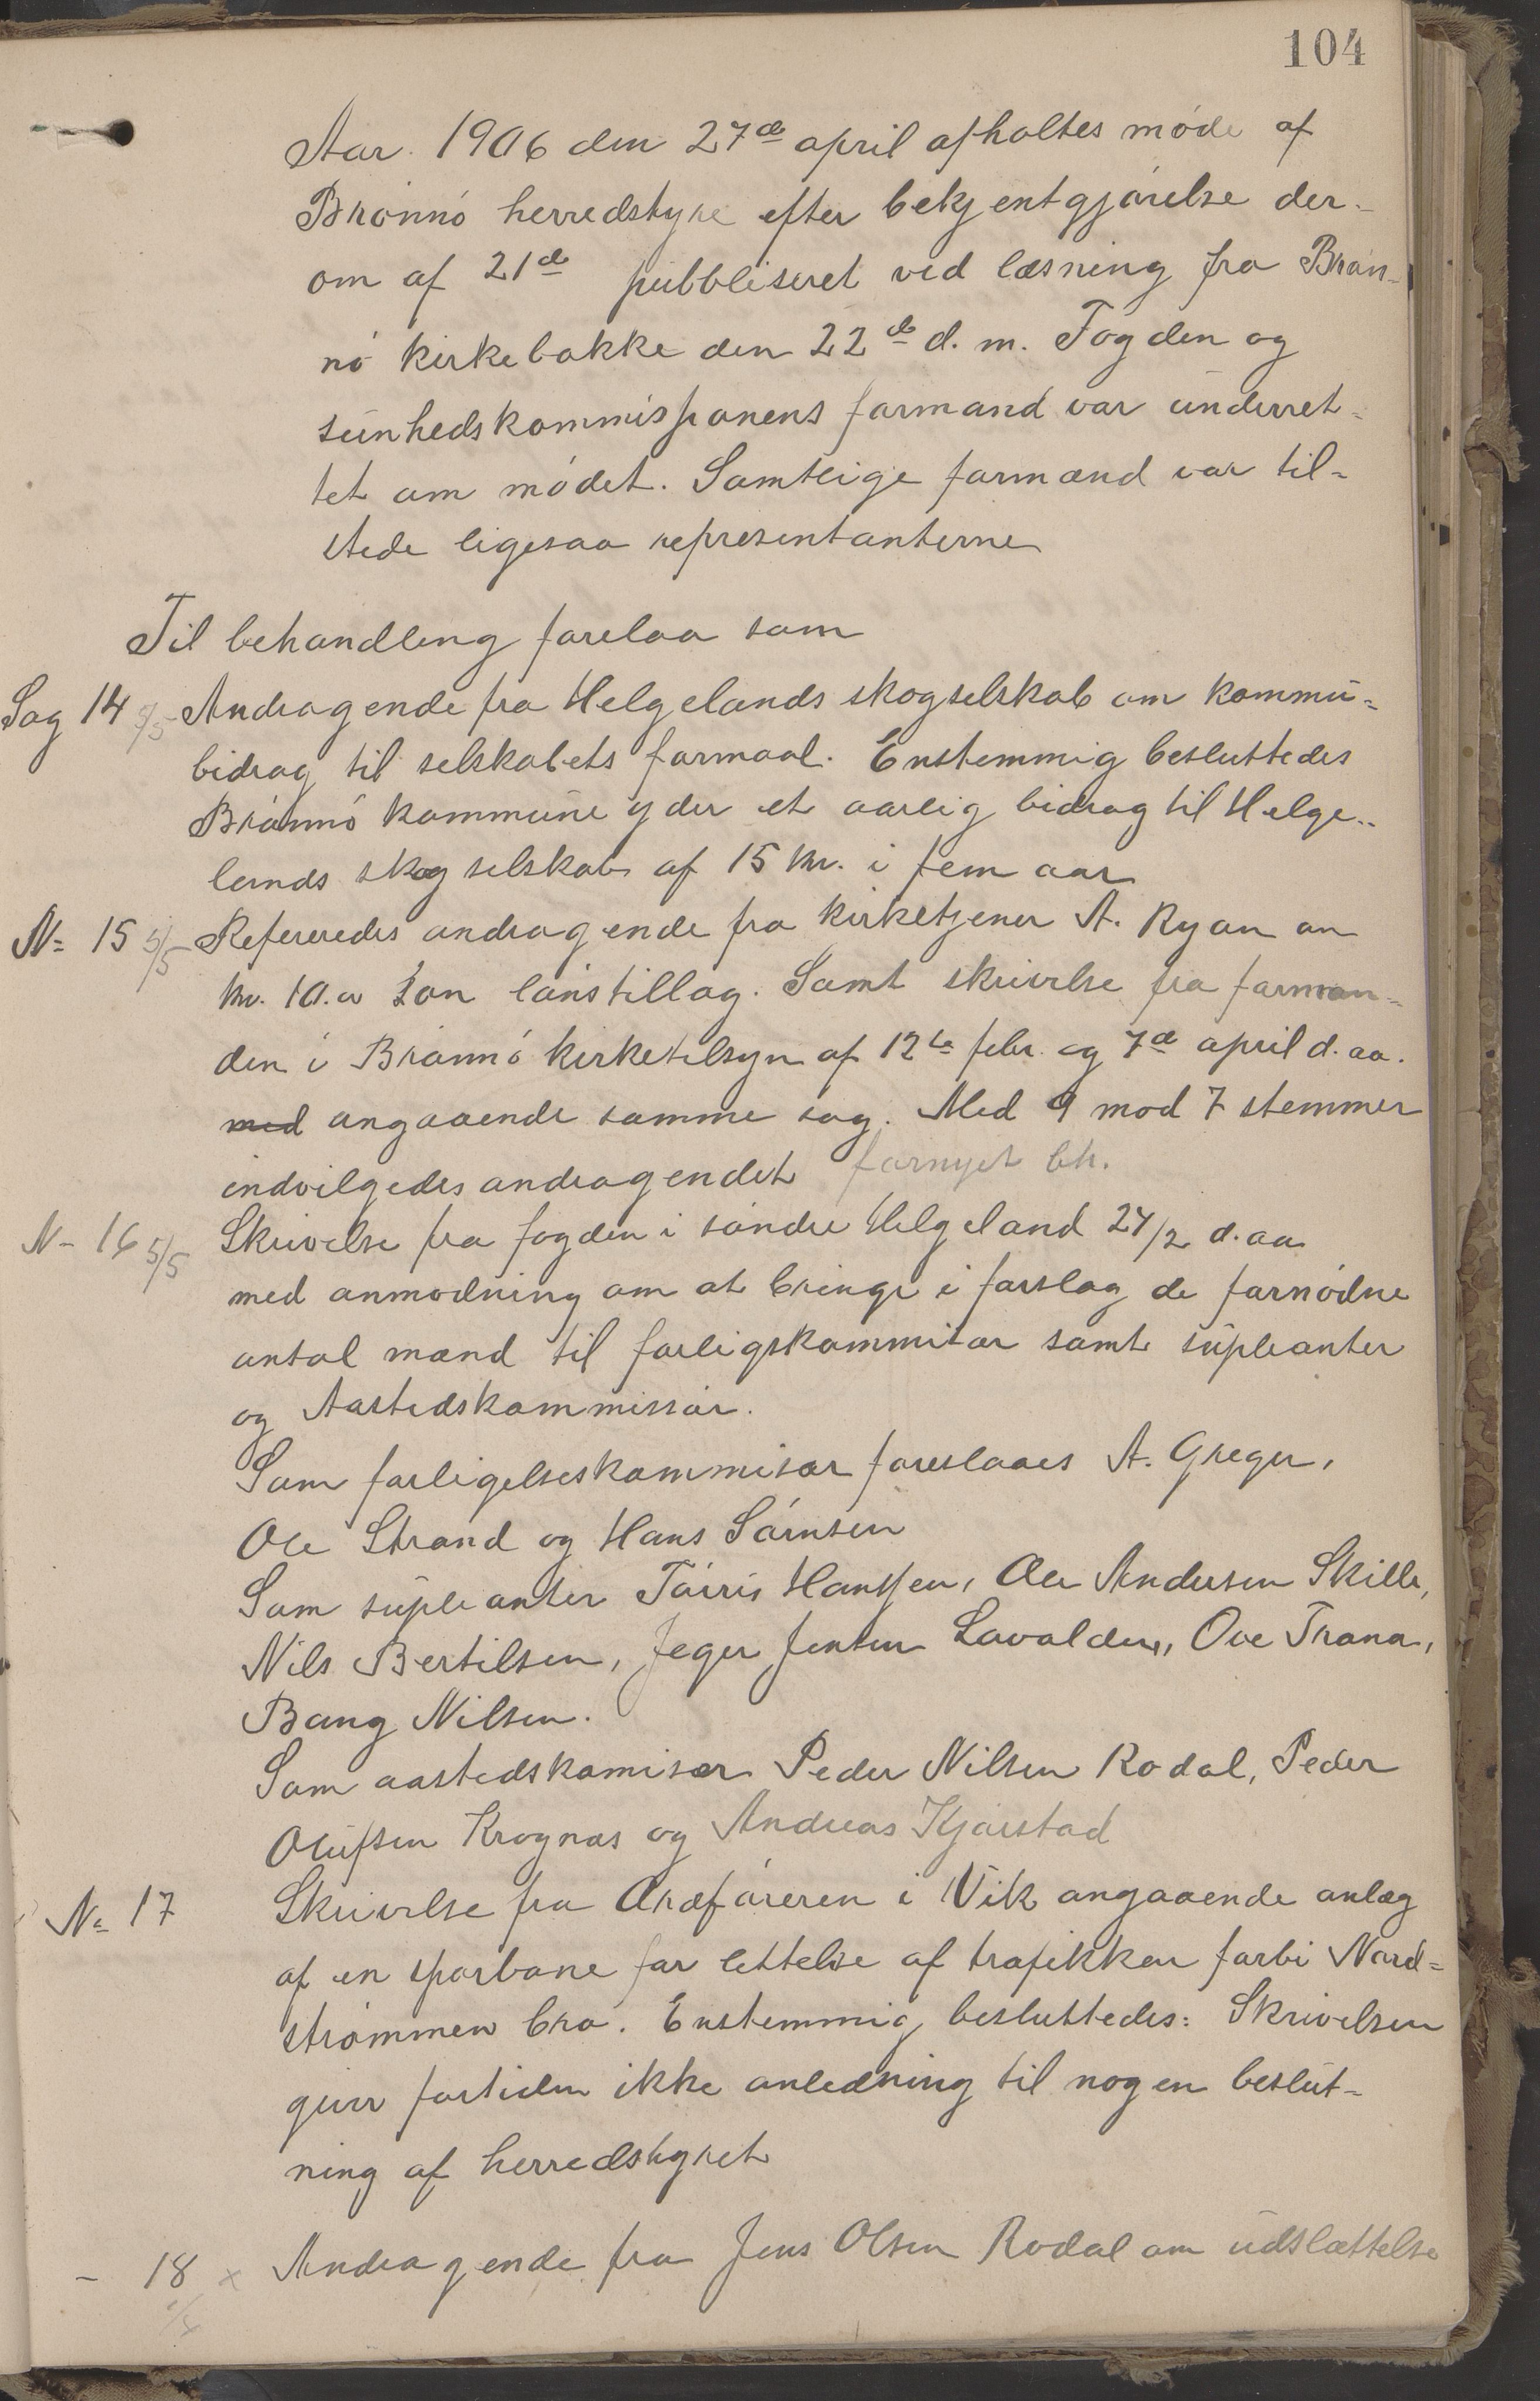 104
Aar. 1906 den 27de april afholtes møde af
Brønnø herredstyre efter bekjentgjørelse der-
om af 21de pubbliseret ved læsning fra Brøn-
nø kirkebakke den 22de d. m. Fogden og
sunhedskommissionens formand var underret-
tet om mødet. Samtlige formænd var til-
stede ligesaa representanterne
Til behandling forelaa som
Sag 14 5/5 Andragende fra Helgelands skogselskab om kommu-
bidrag til selskabets formaal. Enstemmig besluttedes
Brønnø kommune yder et aarlig bidrag til Helge-
lands skogselskab af 15 kr. i fem aar
No 15 5/5 Refereredes andragende fra kirketjener A. Ryan om
kr. 10.00 lønstillæg. Samt skrivelse fra forman-
den i Brønnø kirketilsyn af 12te febr. og 7de april d. aa.
med angaaende samme sag. Med 9 mod 7 stemmer
indvilgedes andragendet fornyet bh.
N- 16 5/5 Skrivelse fra fogden i søndre Helgeland 24/2 d. aa
med anmodning om at bringe i forslag de fornødne
antal mænd til forligskommisær samt supleanter
og Aastedskommissær.
Som forligelseskommisær foreslaaes A. Greger,
Ole Strand og Hans Sørnsen
Som supleanter Tørris Hanssen, Ole Andersen Skille,
Nils Bertilsen, Jeger Jenten Lavalder, Ove Trana,
Bang Nilsen.
Som aastedskomisær Peder Nilsen Rodal, Peder
Olufsen Krognæs og Andreas Kjærstad
No 17 Skrivelse fra Ordføreren i Vik angaaende anlæg
af en sporbane for lettelse af trafikken forbi Nord-
strømmen bro. Enstemmig besluttedes: Skrivelsen
giver fortiden ikke anledning til nogen beslut-
ning af herredstyret
- 18 x Andragende fra Jens Olsen Rodal om udslættelse